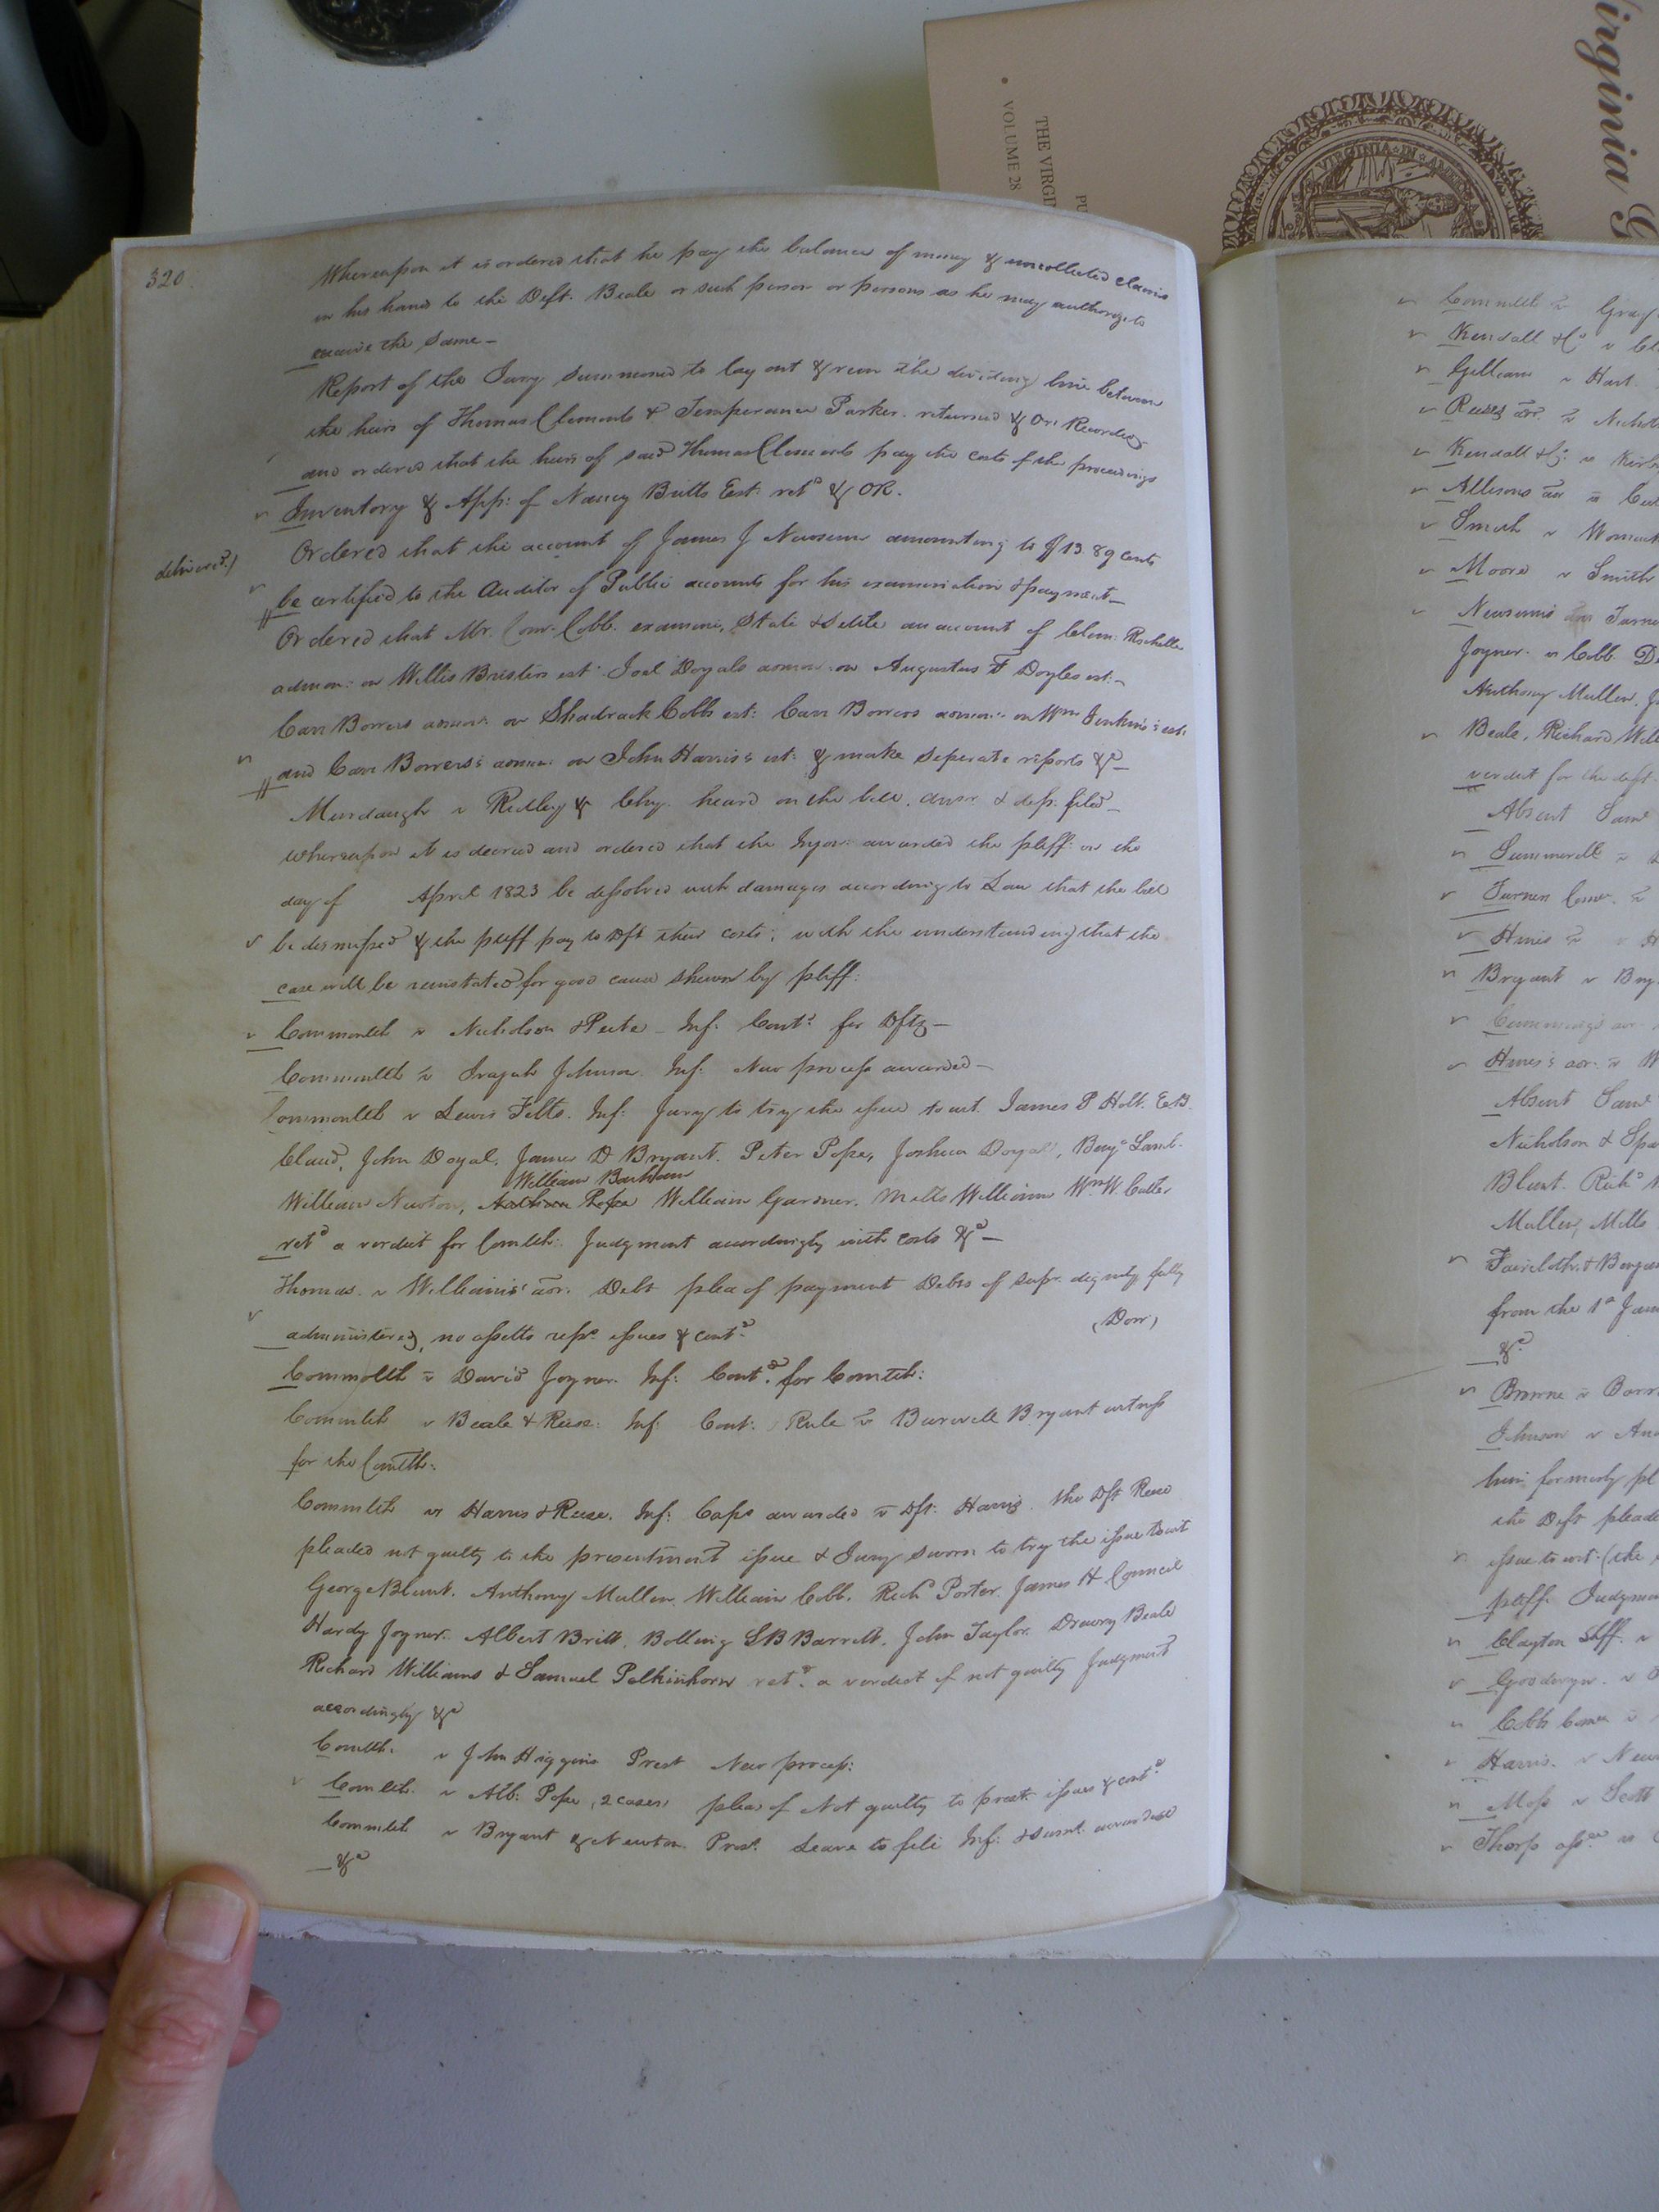 320
Whereupon it is ordered that he pay the balance of money & uncollected claims
in his hand to the Deft. Beale or such person or persons as he may authorize to
receive the same –
Report of the Jury summoned to lay out & run the dividing line between
the heirs of Thomas Clements & Temperance Parker. returned & Or: Recorded
and ordered that the heirs of said Thomas Clements pay the costs of the proceedings
Inventory & App: of Nancy Britts Est: retd & OR.
delivered)
Ordered that the account of James J Newsum amounting to $13.89 cents
be certified to the Auditor of Public accounts for his examination & payment –
Ordered that Mr. Comr. Cobb. examine, State & Settle an account of Clem: Rochelle
admon: on Willis Bristers est: Joel Doyals admon: on Augustus F Doyles est: –
Carr Bowers admon: on Shadrack Cobbs est: Carr Bowers admon: on Wm Jenkins's est:
and Carr Bowers's admon: on John Harris's est: & make seperate reports &c –
Murdaugh v Ridley & Chy. heard on the bill, answ. & dep: filed –
whereupon it is decreed and ordered that the Injon: awarded the pltff: on the
day of April 1823 be dissolved with damages according to Law that the bill
be dismissed & the pltff pay to Dft their costs; with the understanding that the
case will be reinstated for good cause shewn by pltff:
Commonlth v Nicholson & Peete – Inf: Contd for Dfts –
Commonlth v Iragah Johnson. Inf: New process awarded –
Commonlth v Lewis Felts. Inf: Jury to try the issue to wit. James P Holt. E.B.
Claud, John Doyal, James D Bryant. Peter Pope, Joshua Doyal, Benja Lamb.
William Barham
William Newton, William Gardner. Mills William Wm W. Cutler
retd a verdict for Comlth: Judgment accordingly with costs &c –
Thomas. v Williams' aor. Debt plea of payment Debts of supr. dignity fully
administered, no assetts repn. issues & contd (Dorr)
Commonlth v David Joyner. Inf: Contd. for Comlth:
Commlth v Beale & Reese: Inf: Cont: Rule v Burwell Bryant witness
for the Comlth:
Commlth vs Harris & Reese. Inf: Caps awarded v Dft: Harris. the Dft Reese
pleaded not guilty to the presentment issue & Jury sworn to try the issue to wit
George Blunt. Anthony Mullen. William Cobb. Richd Porter. James H Council
Hardy Joyner. Albert Britt. Bolling S B Barrett. John Taylor. Drewry Beale
Richard Williams & Samuel Pelkinhorn retd. a verdict of not guilty Judgment
accordingly &c
Comlth. v John Higgins Prest New process:
Comlth. v Alb: Pope, 2 cases, pleas of Not guilty to prest: issues & contd
Commlth v Bryant & Newton. Prest. Leave to file Inf: & sums. awarded
&c
Virginia
THE VIRGI
VOLUME 28
PU
VIRGINIA IN
Commlth v Gray
Kendall & Co v
Gilliam v Hart.
Kendall & Co: v
Allisons aor v
Smith v Womack
Moore v Smith
Newsums
Joyner. v Cobb. D
Anthony Mullen. J
Beale, Richard Will
verdict for the deft.
Absent Saml
Summerell v
Turner
Hines v
Bryant v Bry
Hines's aor. v W
Absent Saml
Nicholson & Spa
Blunt. Richd
Mullen, Mills
from the 1st Jan
&c.
Browne v Barr
Johnson v
him formerly pl
the Deft pleade
issue to wit: (the
pltff. Judgmen
Clayton v
Goodwyn. v
Cobbs
Harris. v New
Moss v Scott
Thorp asse. v